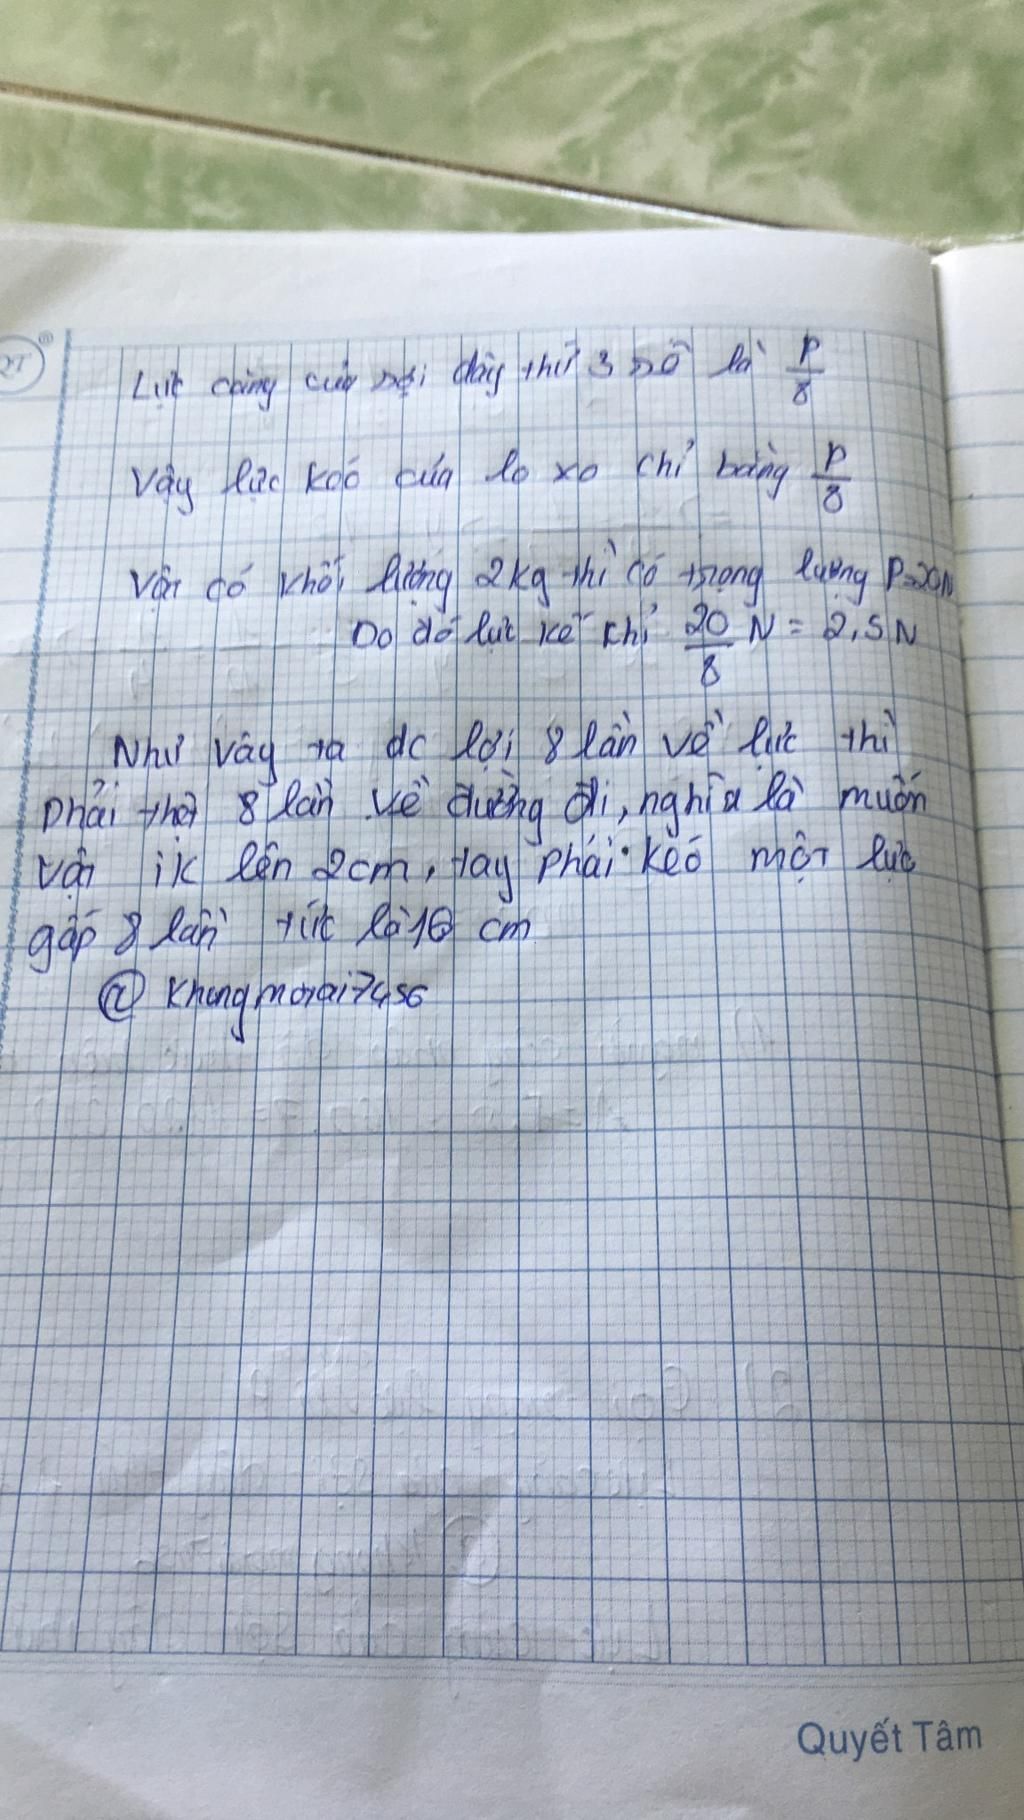 Lực căng của sợi dây thứ 3 sẽ là P/8
Vậy lực kéo của lo xo chỉ bằng P/8
Vật có khối lượng 2kg thì có trọng lượng P=20N
Do đó lực kế chỉ 20/8 N = 2,5N
Như vậy ta dc lợi 8 lần về lực thì
phải thiệt 8 lần về đường đi, nghĩa là muốn
vật lên 2cm, tay phải kéo một lực
gấp 8 lần tức là 16 cm
Quyết Tâm